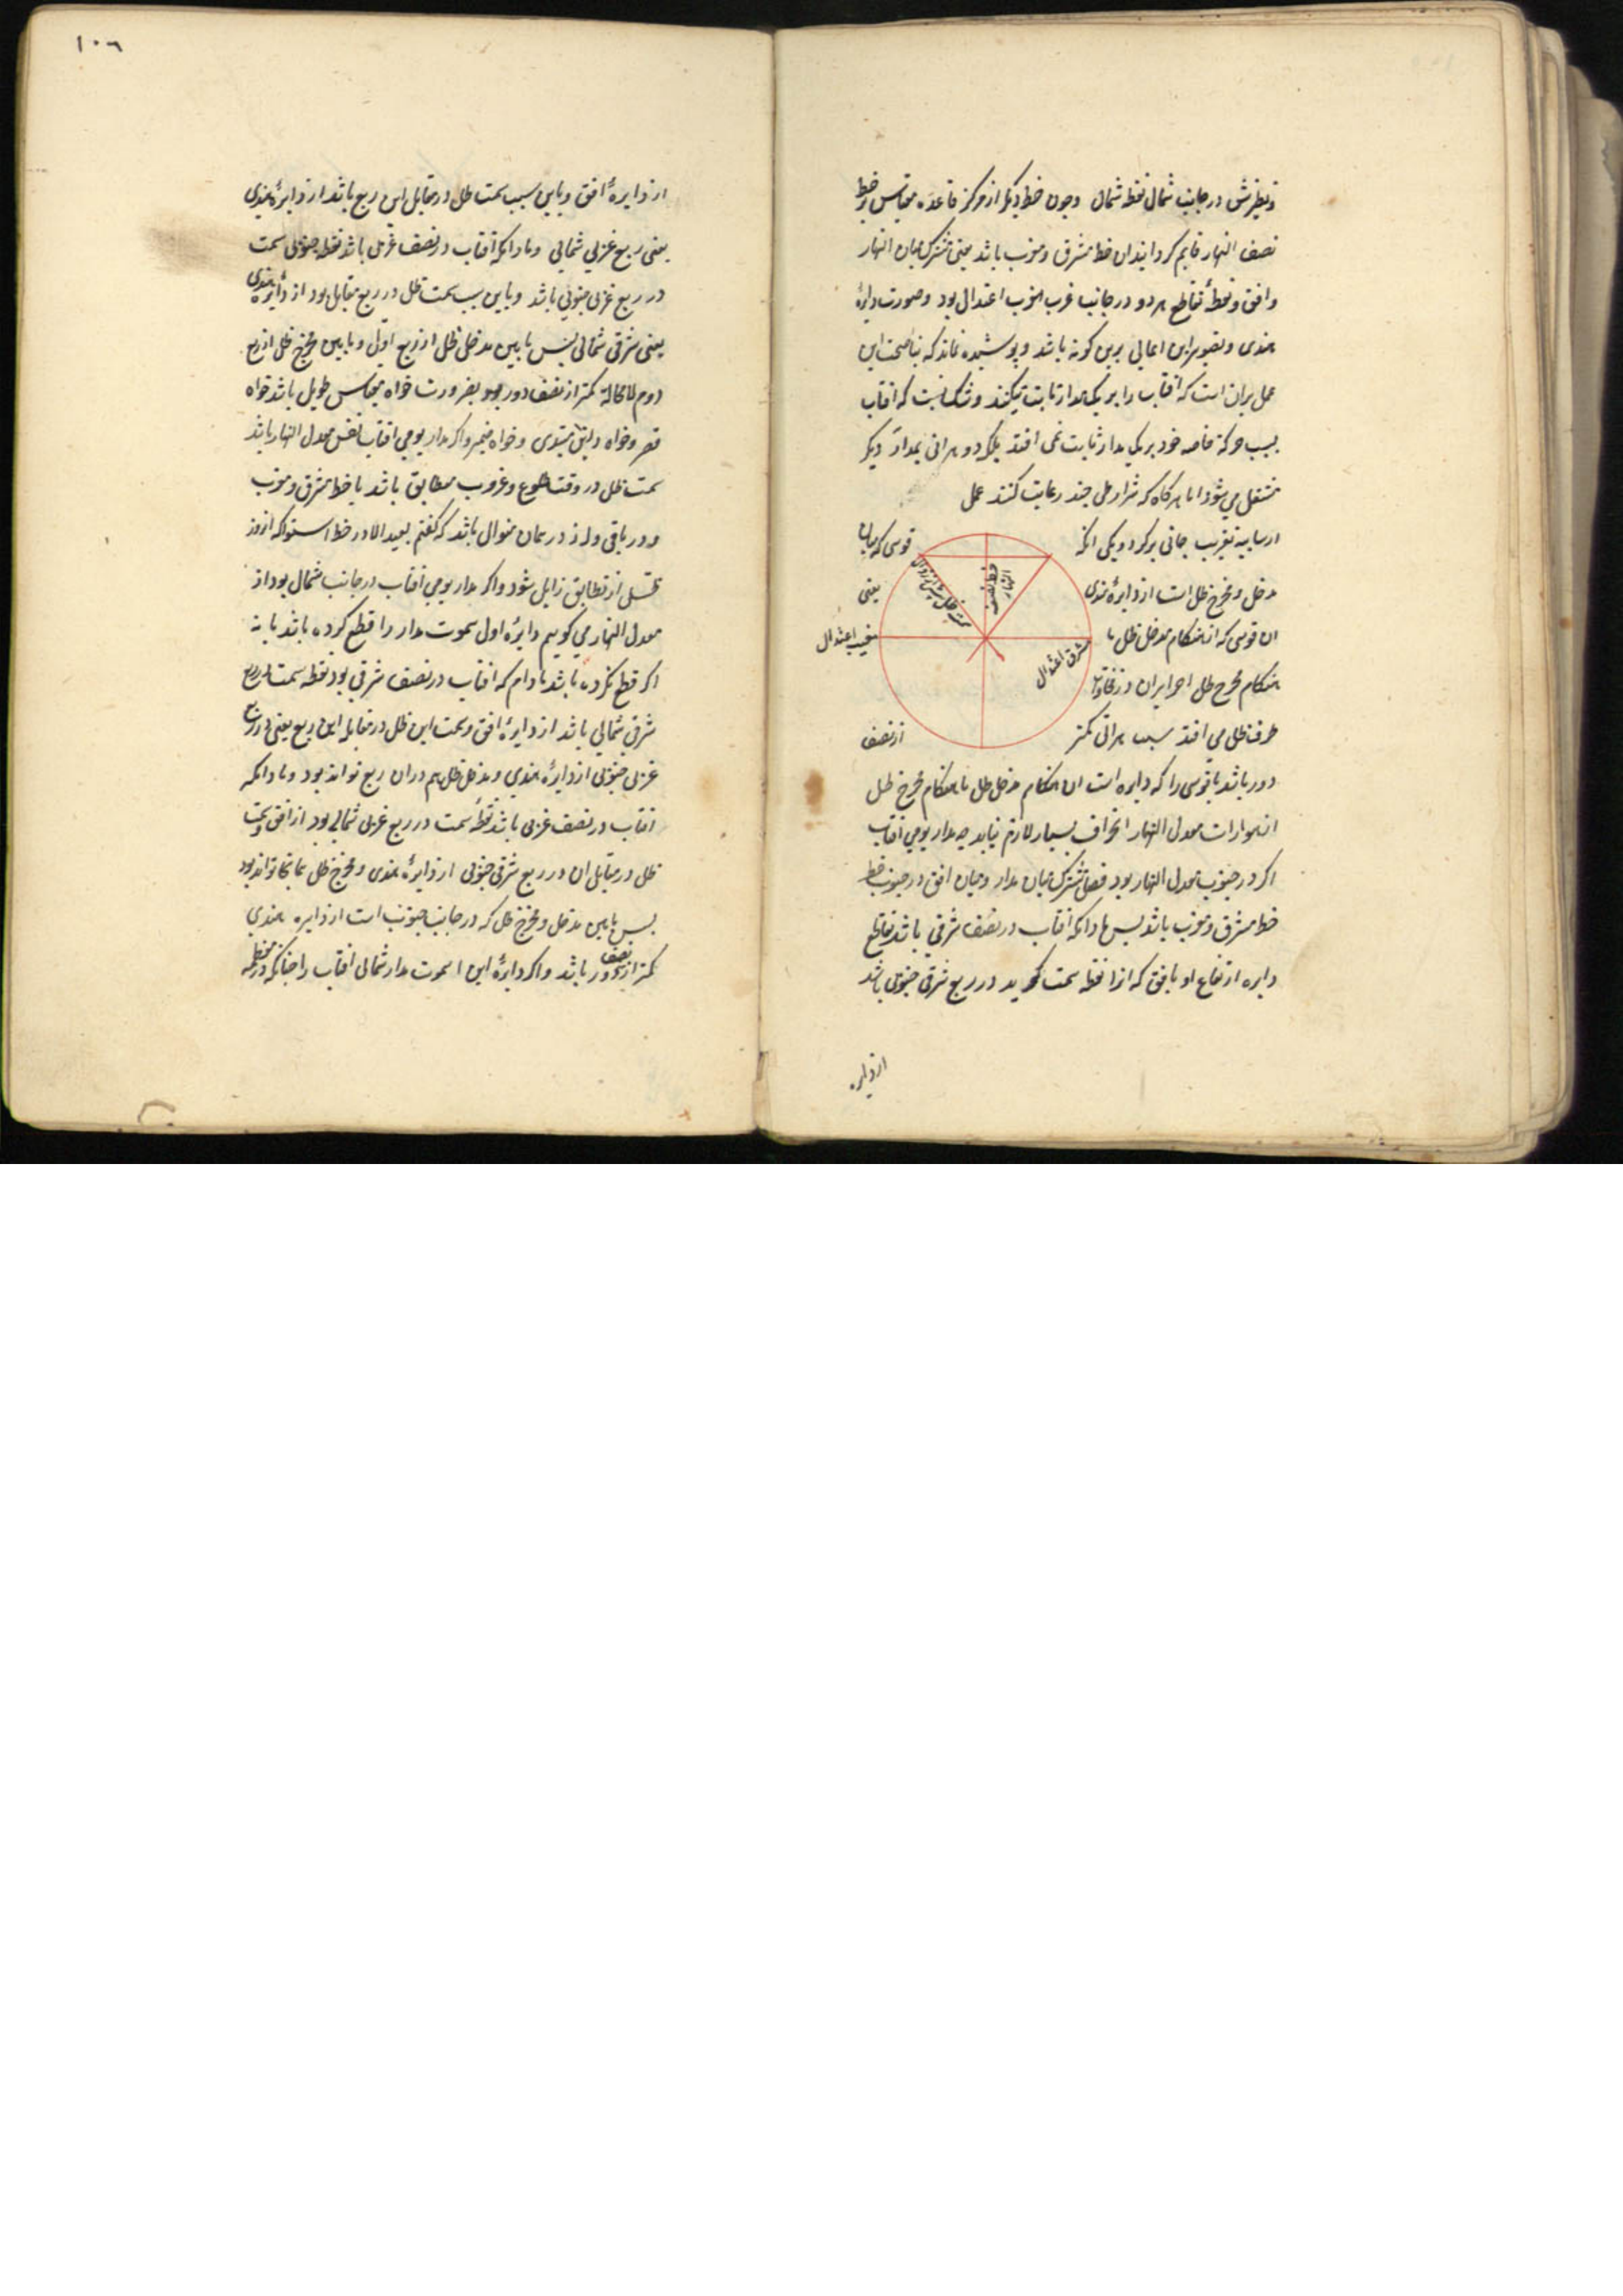 ونظیرش در جانب شمال نقطه شمال وچون خط دیگر از مرکز قاعده مقیاس بر خط
نصف النهار قایم کردانند ان خط مشرق ومغرب باشد یعنی مشترک میان النهار
وافق ونقطهٔ تقاطع هر دو در جانب غرب مغرب اعتدال بود وصورت دایرهٔ
هندی وتصویر این اعمال برین کونه باشد وپوشیده نماند که بناء صحت این
عمل بران است که افتاب را بر یک مدار ثابت کنند وشک نیست که افتاب
بسبب حرکة خاصه خود بر یک مدار ثابت نمی افتد بلکه در هر انی بمدار دیگر
منتقل می شود اما هر کاه که شرایطی چند رعایت کنند عمل
قوسی که میان
مدخل ومخرج ظل است از دایرهٔ هندی یعنی
ان قوسی که از هنکام مدخل ظل تا
هنکام مخرج ظل
طرف ظل می افتد کمتر از نصف
دور باشد تا قوسی را که دایره است از هنکام مدخل ظل تا هنکام مخرج ظل
از موازات معدل النهار انحراف بسیار لازم نیاید چه مدار یومی افتاب
اکر در جنوب معدل النهار بود فصل مشترک میان مدار ومیان افق در جنوب خط
خط مشرق ومغرب باشد پس مادامکه افتاب در نصف شرقی باشد تقاطع
دایره ارتفاع او با افق که انرا نقطه سمت کویند در ربع شرقی جنوبی باشد
خط نصف النهار
مشرق اعتدال
مغرب اعتدال
از دایره
۱۰٦
از دایرهٔ افق وباین سبب سمت ظل در مقابل این ربع باشد از دایرهٔ هندی
یعنی ربع غربی شمالی ومادامکه افتاب در نصف غربی باشد نقطه جنوبی سمت
در ربع غربی جنوبی باشد وباین سبب سمت ظل در ربع مقابل بود از دایرهٔ هندی
یعنی شرقی شمالی پس مابین مدخل ظل از ربع اول ومابین مخرج ظل از ربع
دوم لامحاله کمتر از نصف دور بود بضرورت خواه مقیاس طویل باشد خواه
قصیر وخواه مستوی وخواه واکر مدار یومی افتاب نفس معدل النهار باشد
سمت ظل در وقت طلوع وغروب مطابق باشد با خط مشرق ومغرب
ودر باقی روز در همان منوال باشد که کفتم بعید الا در خط استوا که از روز
ظل از تطابق زایل شود واکر مدار یومی افتاب در جانب شمال بود از
معدل النهار می کوییم دایرهٔ اول سموت مدار را قطع کرده باشد یا نه
اکر قطع نکرده باشد مادام که افتاب در نصف شرقی بود نقطه سمت در ربع
شرقی شمالی باشد از دایرهٔ افق وسمت این ظل در مقابله این ربع یعنی در ربع
غربی جنوبی از دایرهٔ هندی ومدخل ظل هم در ان ربع تواند بود ومادامکه
افتاب در نصف غربی باشد نقطه سمت در ربع غربی شمالی بود از افق وسمت
ظل در مقابل ان در ربع شرقی جنوبی از دایرهٔ هندی ومخرج ظل همانجا تواند بود
پس مابین مدخل ومخرج ظل که در جانب جنوب است از دایره هندی
کمتر از نصف دور باشد واکر دایرهٔ اول سموت مدار شمالی افتاب را چنانکه در